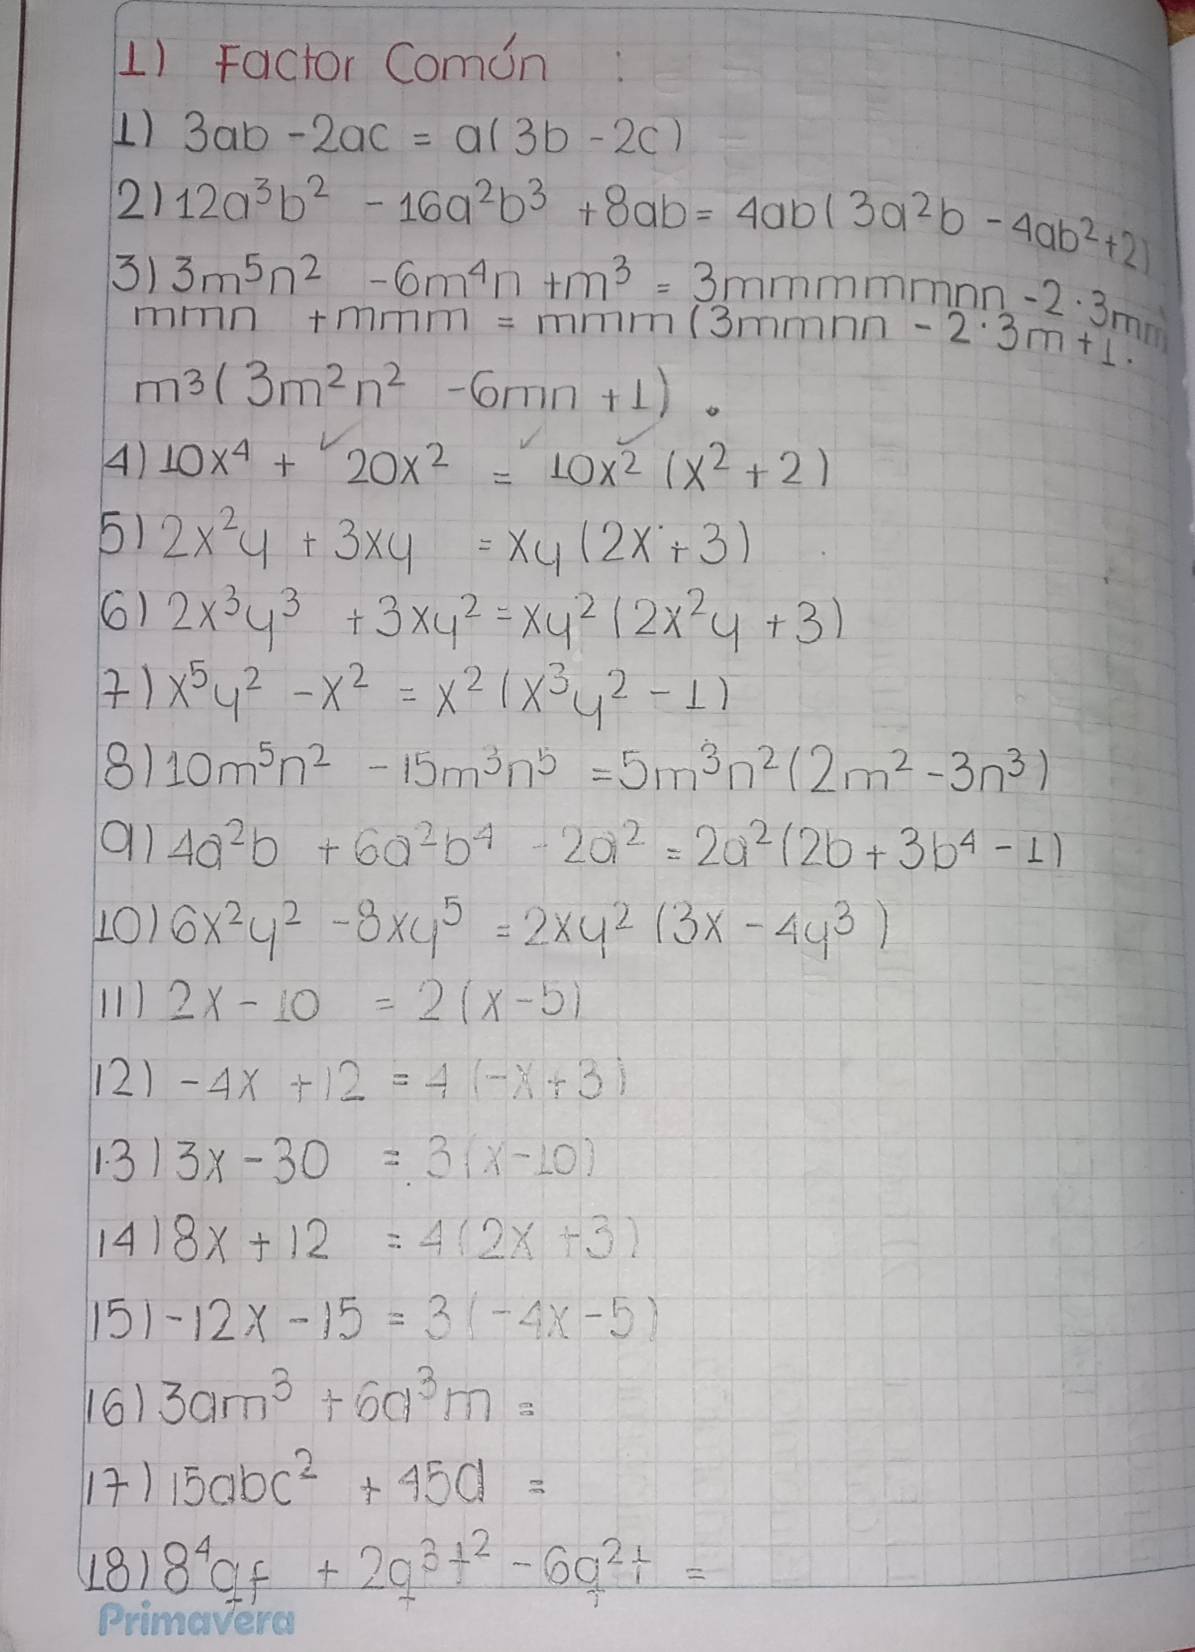 1) Factor Común :
1) 3ab - 2ac = a(3b - 2c)
2) 12a³b² - 16a²b³ + 8ab = 4ab(3a²b - 4ab² + 2)
3) 3m⁵n² - 6m⁴n + m³ = 3mmmmmnn - 2·3mm
mmn + mmm = mmm(3mmnn - 2·3m + 1.
m³(3m²n² - 6mn + 1).
4) 10x⁴ + 20x² = 10x²(x² + 2)
5) 2x²y + 3xy = xy(2x + 3)
6) 2x³y³ + 3xy² = xy²(2x²y + 3)
7) x⁵y² - x² = x²(x³y² - 1)
8) 10m⁵n² - 15m³n⁵ = 5m³n²(2m² - 3n³)
9) 4a²b + 6a²b⁴ - 2a² = 2a²(2b + 3b⁴ - 1)
10) 6x²y² - 8xy⁵ = 2xy²(3x - 4y³)
11) 2x - 10 = 2(x - 5)
12) -4x + 12 = 4(-x + 3)
13) 3x - 30 = 3(x - 10)
14) 8x + 12 = 4(2x + 3)
15) -12x - 15 = 3(-4x - 5)
16) 3am³ + 6a³m =
17) 15abc² + 45d =
18) + 2q³t² - 6q²t =
Primavera